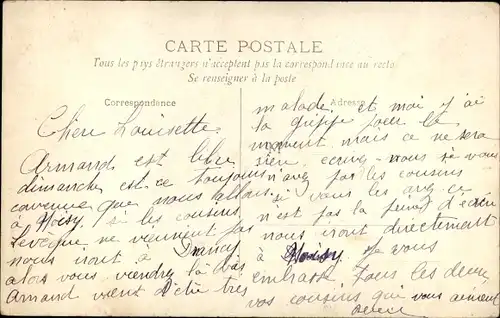 CARTE POSTALE
Tous les pays étrangers n'acceptent pas la correspondance au recto
Se renseigner à la poste
Correspondance
Adresse
Chère Louisette
Armand est libre
dimanche est ce toujours
convenue que nous allons
à Noisy si les cousins
ne viennent pas
nous iront à Drancy
alors vous viendrez là bas
Armand vient d'être très
malade et moi j'ai
la grippe pour le
moment mais ce ne sera
rien ecrivez-nous si vous
n'avez pas les cousins
si vous les avez ce
n'est pas la peine d'ecrire
nous iront directement
à Noisy Je vous
embrasse tous les deux
vos cousins qui vous aiment